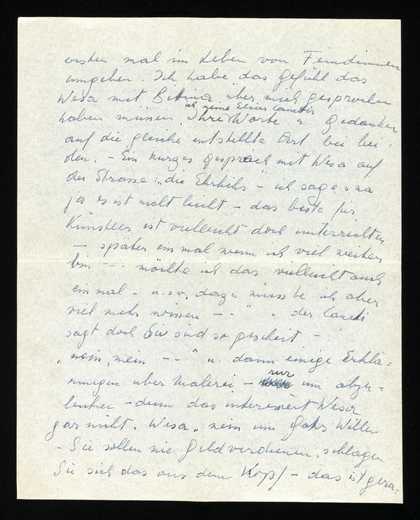 ersten mal im Leben von Feindinnen
umgeben. Ich habe das Gefühl das
Wesa mit Bettina über mich gesprochen
haben müssen. Ihre Worte u Gedanken
auf die gleiche entstellte Art bei bei
den. – Ein kurzes Gespräch mit Wesa auf
der Strasse: „die – ich sage: na
ja es ist nicht leicht – das beste für
Künstler ist vielleicht doch unterrichten
– später einmal wenn ich viel weiter
bin –– möchte ich das vielleicht auch
einmal – u.s.w. dazu müsste ich aber
viel mehr wissen – – " „ der
sagt doch Sie sind so gescheit –
„nein, nein – –" u. dann einige Erklä-
rungen über Malerei – nur um abzu-
lenken – denn das interessiert Weser
gar nicht. Wesa, nein um Gotts Willen
– Sie sollen nie Geld verdienen, schlagen
Sie sich das aus dem Kopf – das ist gera-